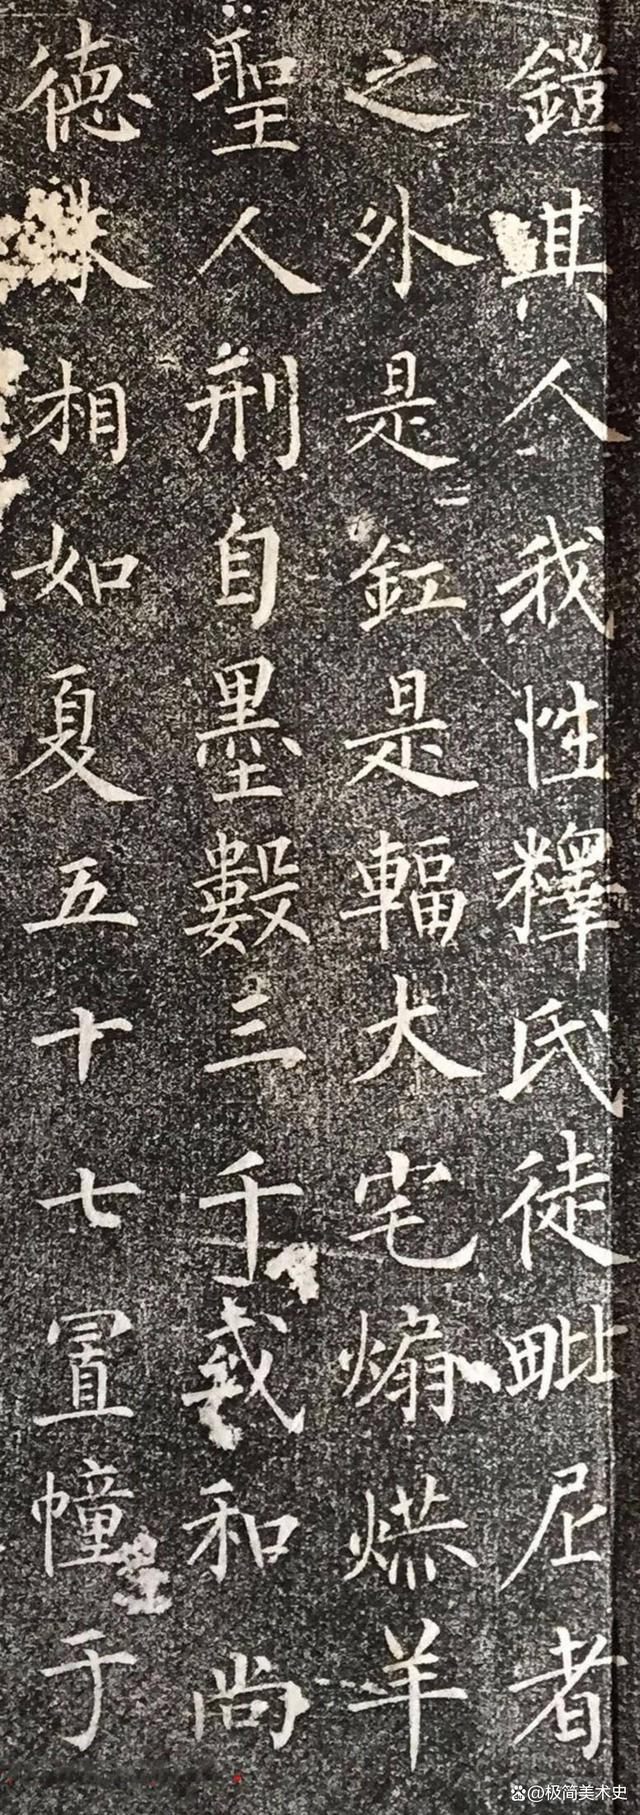 鎧其人我性釋氏徒毗尼者
之外是釭是輻大宅煽羊
聖人刑自墨數三千和尚
德相如夏五十七置幢于
@极简美术史